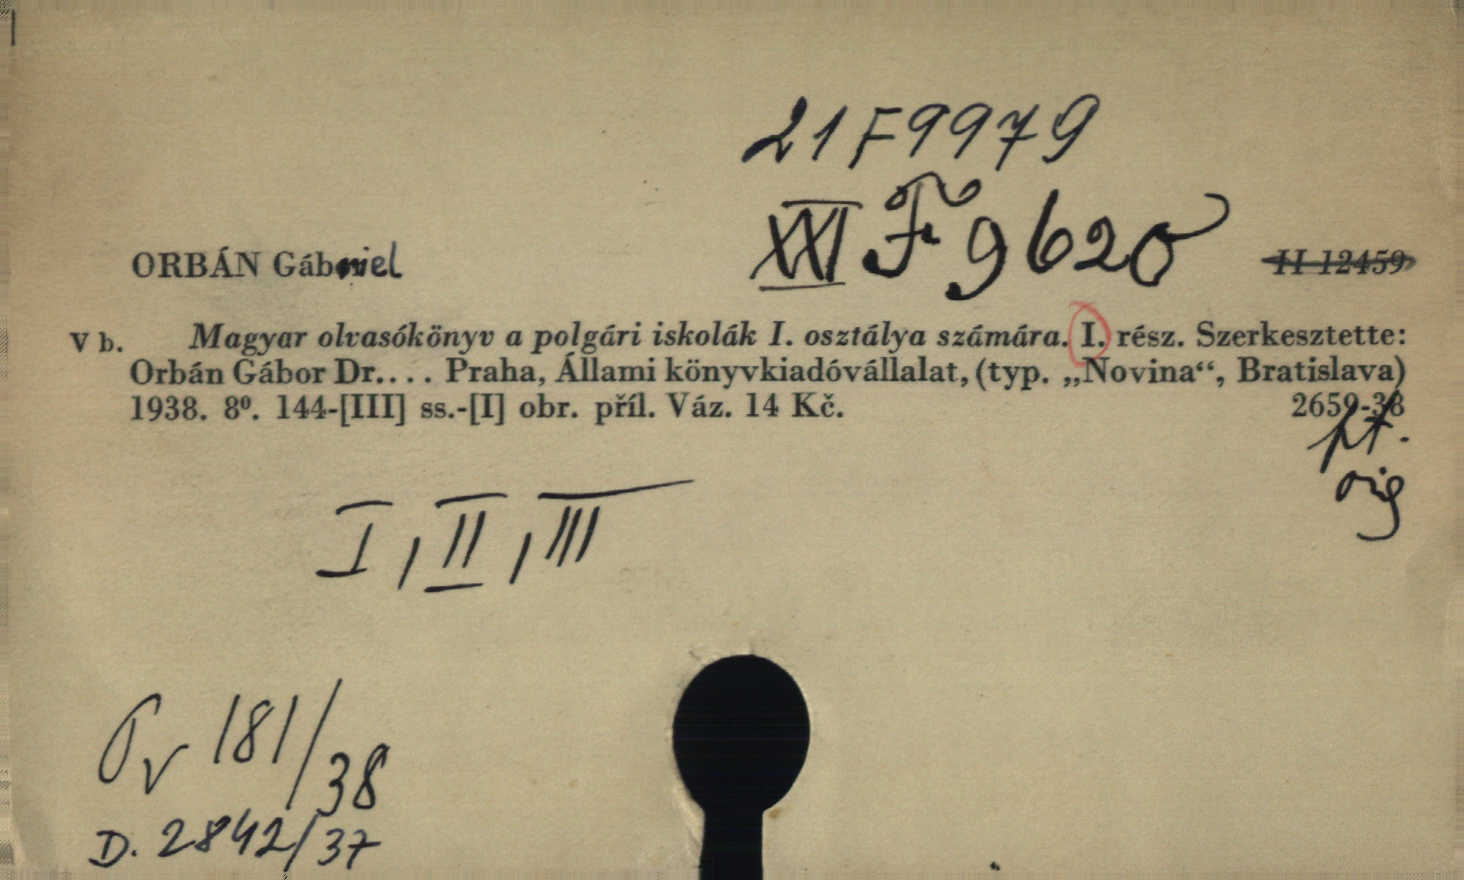 21 F 9979
XXI F 9620
ORBÁN Gábriel
II 12459
V b. Magyar olvasókönyv a polgári iskolák I. osztálya számára. I. rész. Szerkesztette:
Orbán Gábor Dr.... Praha, Állami könyvkiadóvállalat, (typ. „Novina“, Bratislava)
1938. 8⁰. 144-[III] ss.-[I] obr. příl. Váz. 14 Kč. 2659-38
pt.
orig
I, II, III
Pv 181/38
D. 2842/37